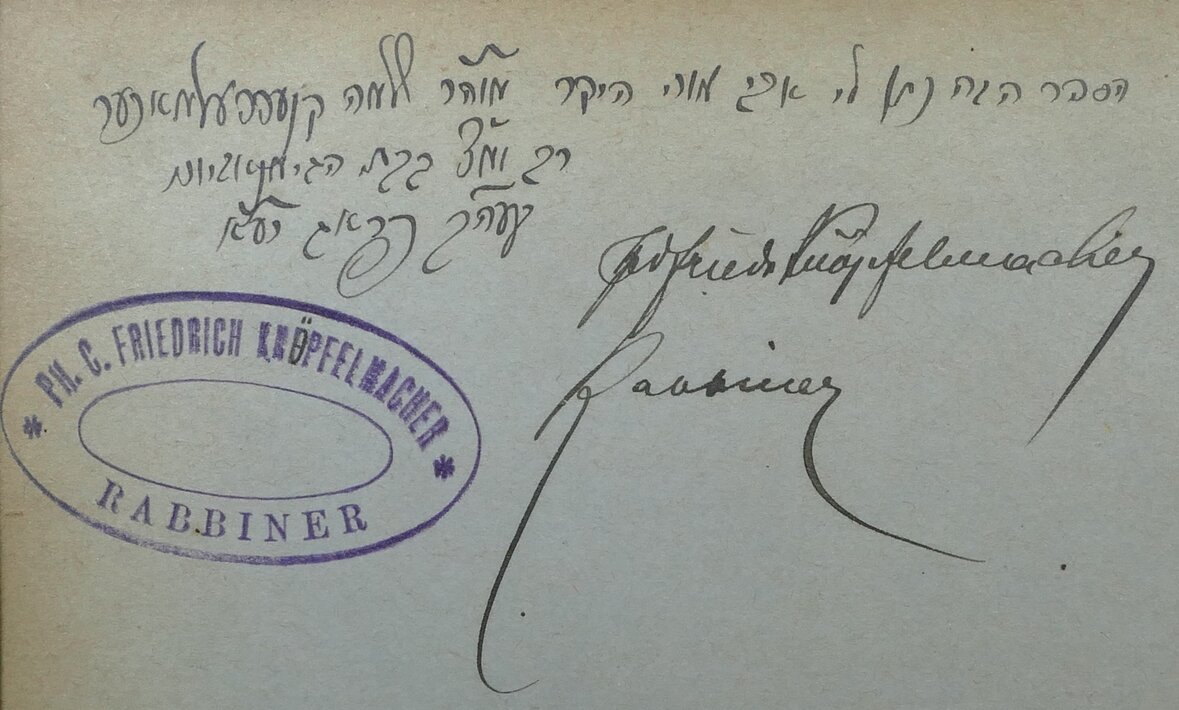 הספר הזה נתן לי אבי מורי היקר מוהר"ר שלמה קנעפפעלמאכער
רב ומ"צ בבת הגימנאזיות
בעה"ק פראג יע"א
Friedr. Knöpfelmacher
Rabbiner
* PH. C. FRIEDRICH KNÖPFELMACHER *
RABBINER